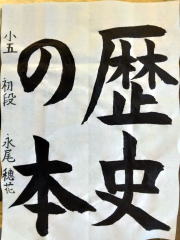 歴史
の本
小五 初段 永尾 穂花